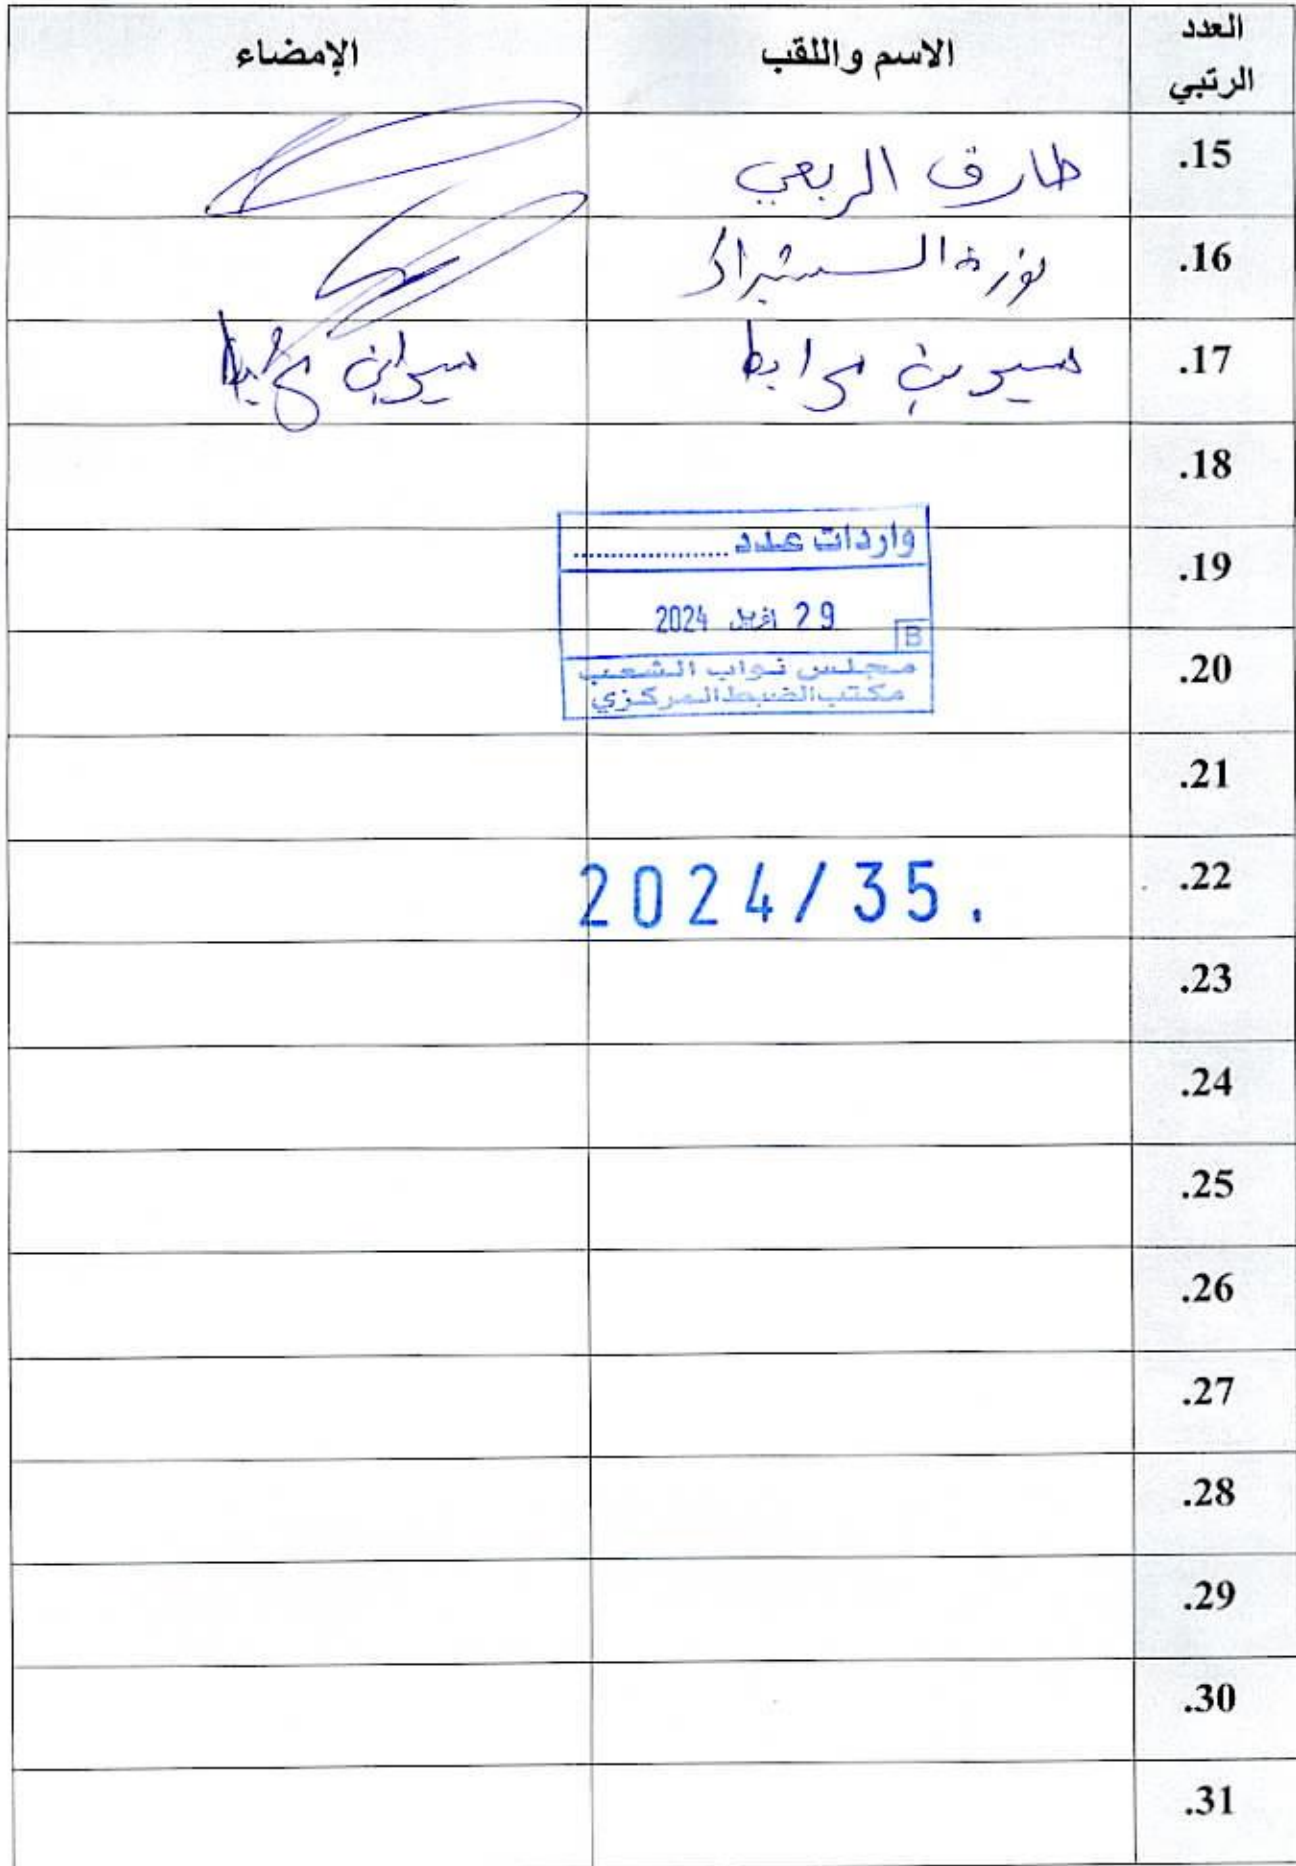 العدد الرتبي الاسم واللقب الإمضاء
15. طارق الربعي
16. نورة الشبراك
17. سيرين مرابط سيرين مرابط
18.
19.
واردات عدد ..................
29 افريل 2024
B
مجلس نواب الشعب
مكتب الضبط المركزي
20.
21.
22.
2024/35.
23.
24.
25.
26.
27.
28.
29.
30.
31.